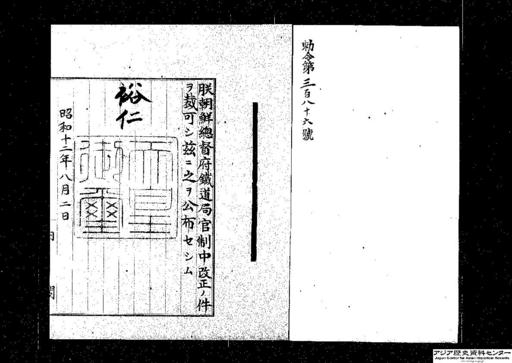 勅令第三百八十六號
朕朝鮮總督府鐵道局官制中改正ノ件
ヲ裁可シ茲ニ之ヲ公布セシム
裕仁
天皇
御璽
昭和十二年八月二日
アジア歴史資料センター
Japan Center for Asian Historical Records